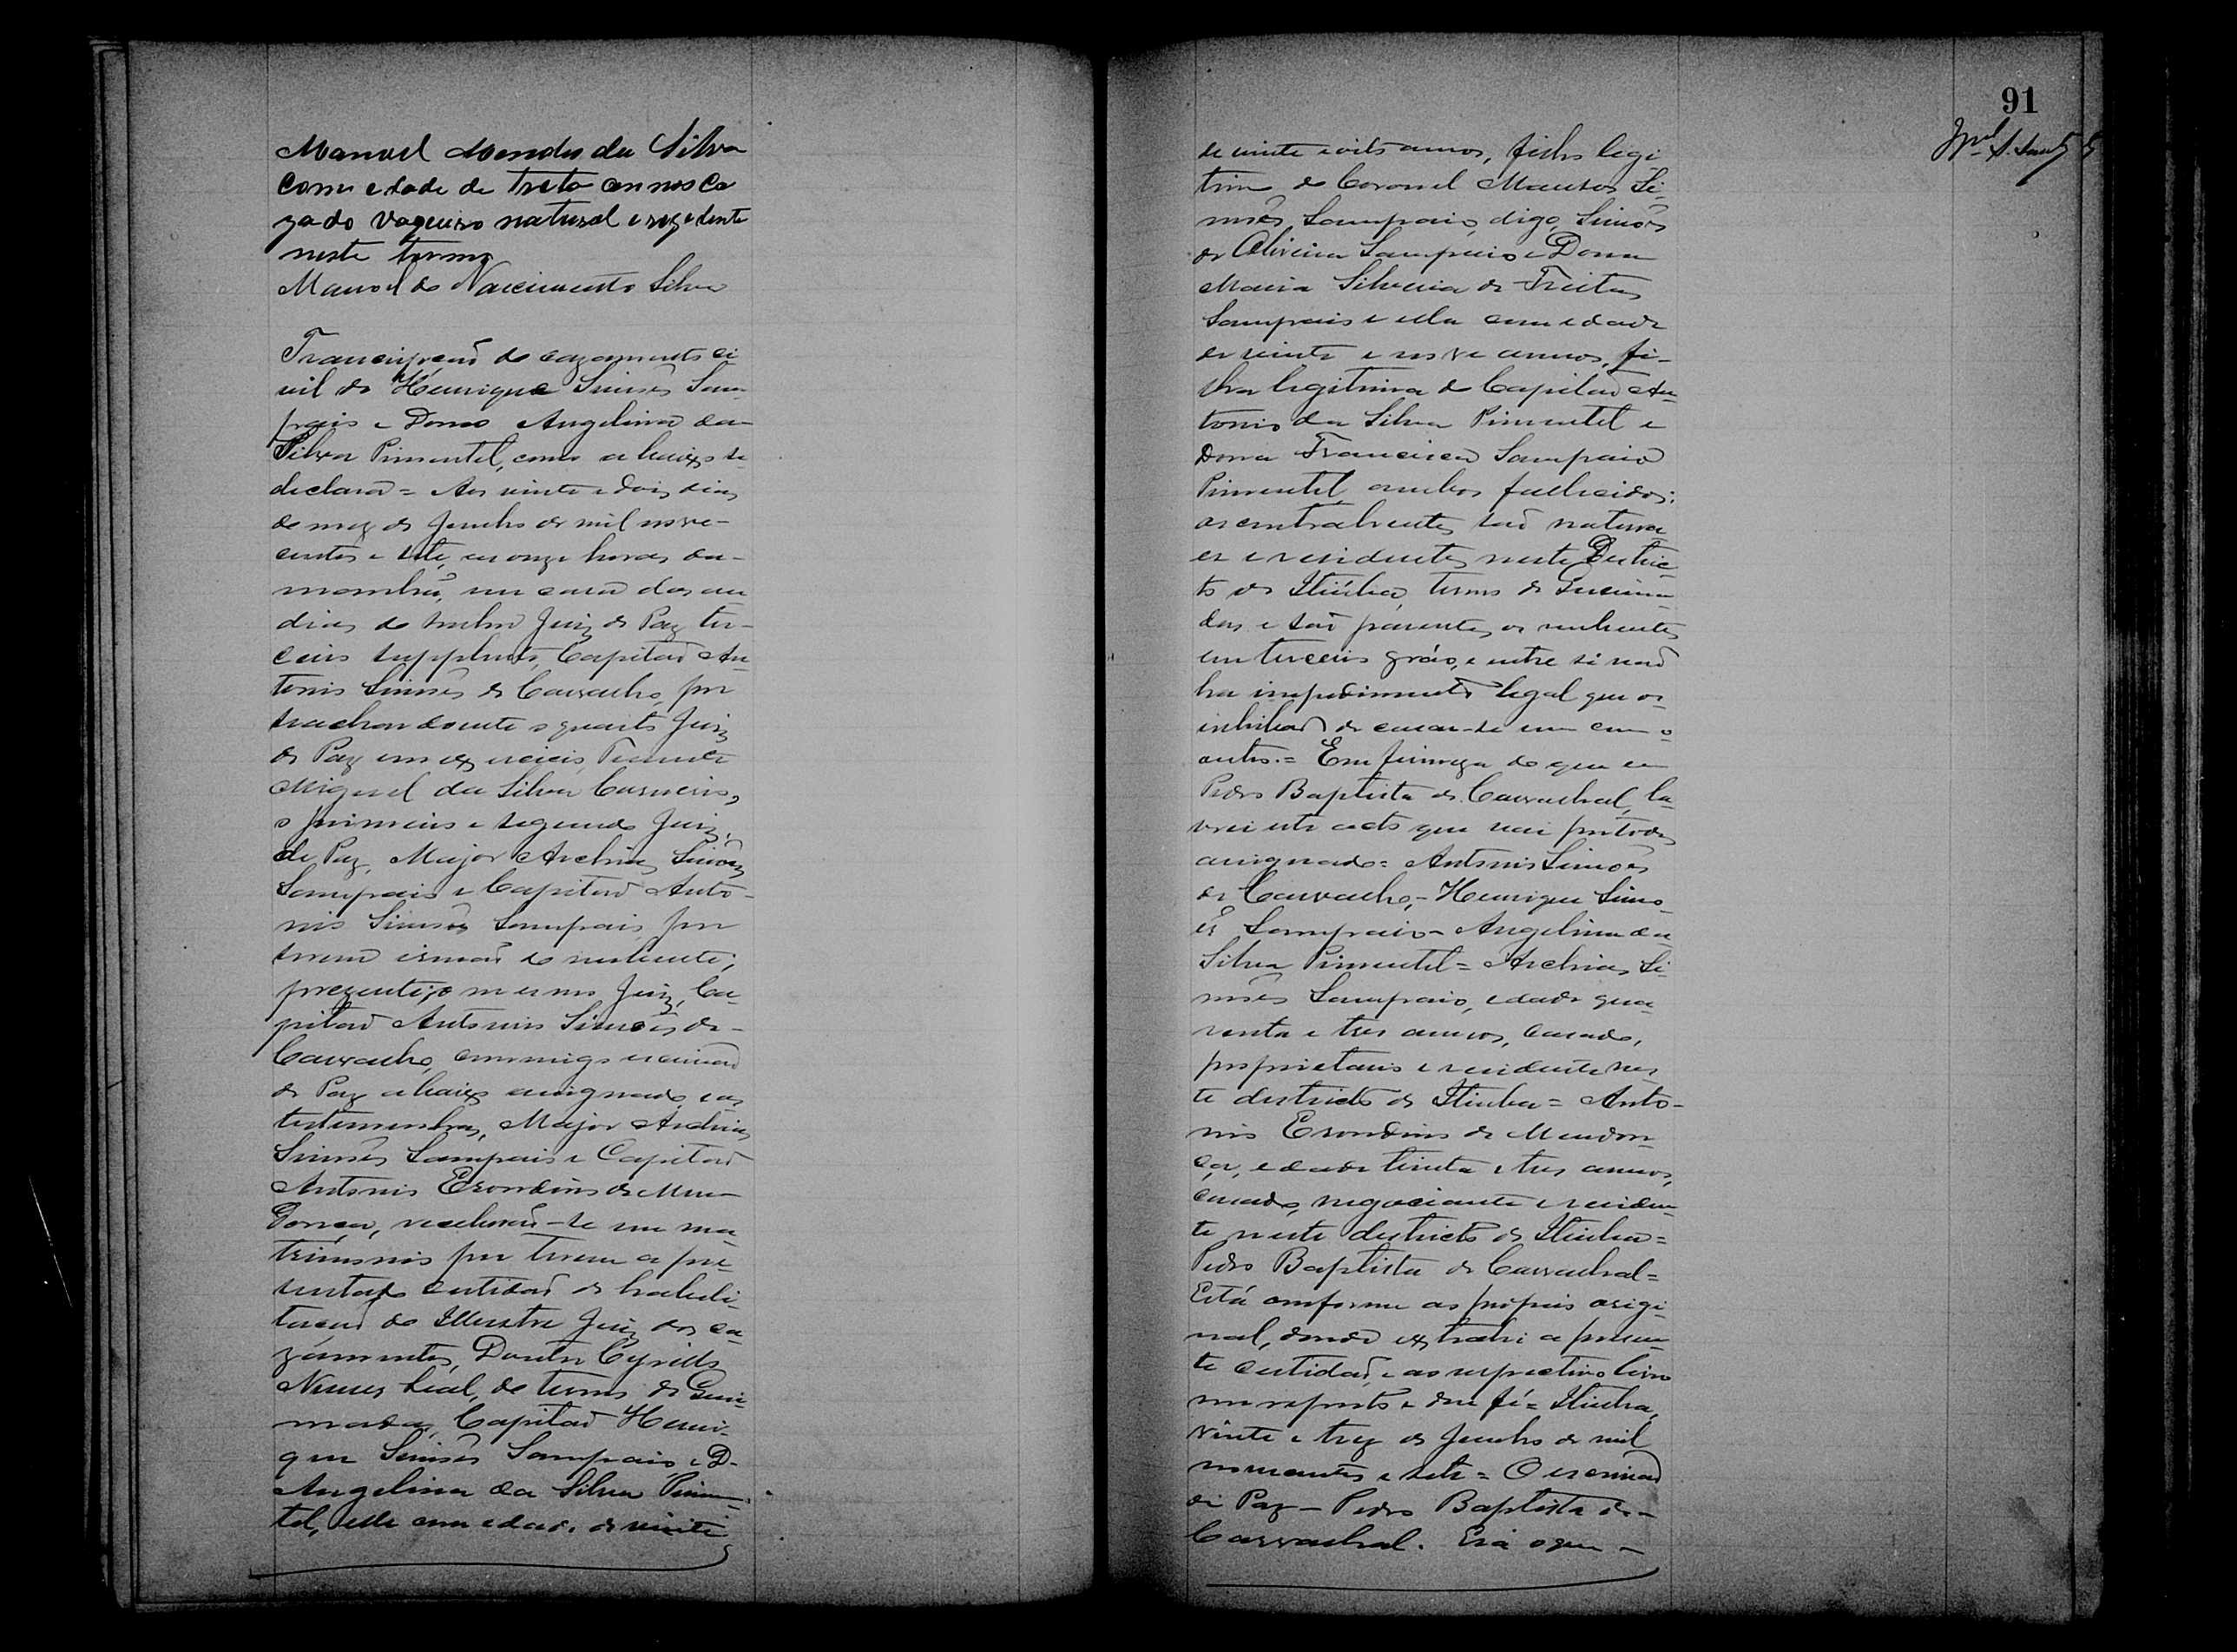 Manoel Mendes da Silva
com edade de treta annos ca
zado vaqueiro natural e rezedente
neste termo
Manoel do Nascimento Silva
Transcripçaõ do cazamento ci
vil de Henrique Simões Sam
paio e Dona Angelina da
Silva Pimentel, como abaixo se
declara = Aos vinte e dois dias
do mez de Junho de mil nove-
centos e sete, as onze horas da
manhã, em casa das au
diencias do senhor Juiz de Paz ter-
ceiro supplente, Capitaõ An
tonio Simões de Carvalho, por
se achar doente o quarto Juiz
de Paz em exercicio, Tenente
Miguel da Silva Carneiro,
o primeiro e segundo Juiz,
de Paz, Major Archias Simões
Sampaio e Capitaõ Anto-
nio Simões Sampaio, por
serem irmaõs do nubente;
prezente, o mesmo Juiz, Ca
pitaõ Antonio Simões de
Carvalho, commigo escrivaõ
de Paz abaixo assignado, e as
testemunhas, Major Archias
Simões Sampaio e Capitaõ
Antonio Esondino de Men
donça, receberaõ-se em ma
trimonio por terem apre
sentado certidaõ de habili-
taçaõ do Illustre Juiz dos ca
zamentos, Doutor Cyrillo
Nunes Leal, do termo de Quei
madas, Capitaõ Henri-
que Simões Sampaio e D.
Angelina da Silva Pimen-
tel, elle com edade de vinte
91
de vinte e oito annos, filho legi
timo do Coronel Simões
Sampaio, digo, Simões
de Oliveira Sampaio e Dona
Maria Silveria de Freitas
Sampaio e ella com edade
de vinte e nove annos, fi-
lha legitima do Capitaõ An
tonio da Silva Pimentel e
Dona Francisca Sampaio
Pimentel, ambos fallecidos;
os contrahentes saõ naturaes
e residentes neste Distric-
to de Itiúba, termo de Queima
das, e saõ parentes os nubentes
em terceiro gráo, e entre si naõ
ha impedimento legal que os
inhibaõ de casar-se um com o
outro. = Em firmeza do que eu
Pedro Baptista de Carvalhal, la
vrei este acto que vai por todos
assignado = Antonio Simões
de Carvalho, - Henrique Simo-
es Sampaio - Angelina da
Silva Pimentel = Archias Si-
mões Sampaio, edade qua
renta e tres annos, casado,
proprietario e residente nes
te districto de Itiuba = Anto-
nio Esondino de Mendon
ça, edade trinta e tres annos,
casado, negociante e residen
te neste districto de Itiuba =
Pedro Baptista de Carvalhal =
Está conforme ao proprio origi
nal, donde extrahi a presen
te certidaõ, e ao respectivo livro
me reporto e dou fé = Itiuba,
vinte e trez de Junho de mil
novecentos e sete = O escrivaõ
de Paz - Pedro Baptista de
Carvalhal. Era o que